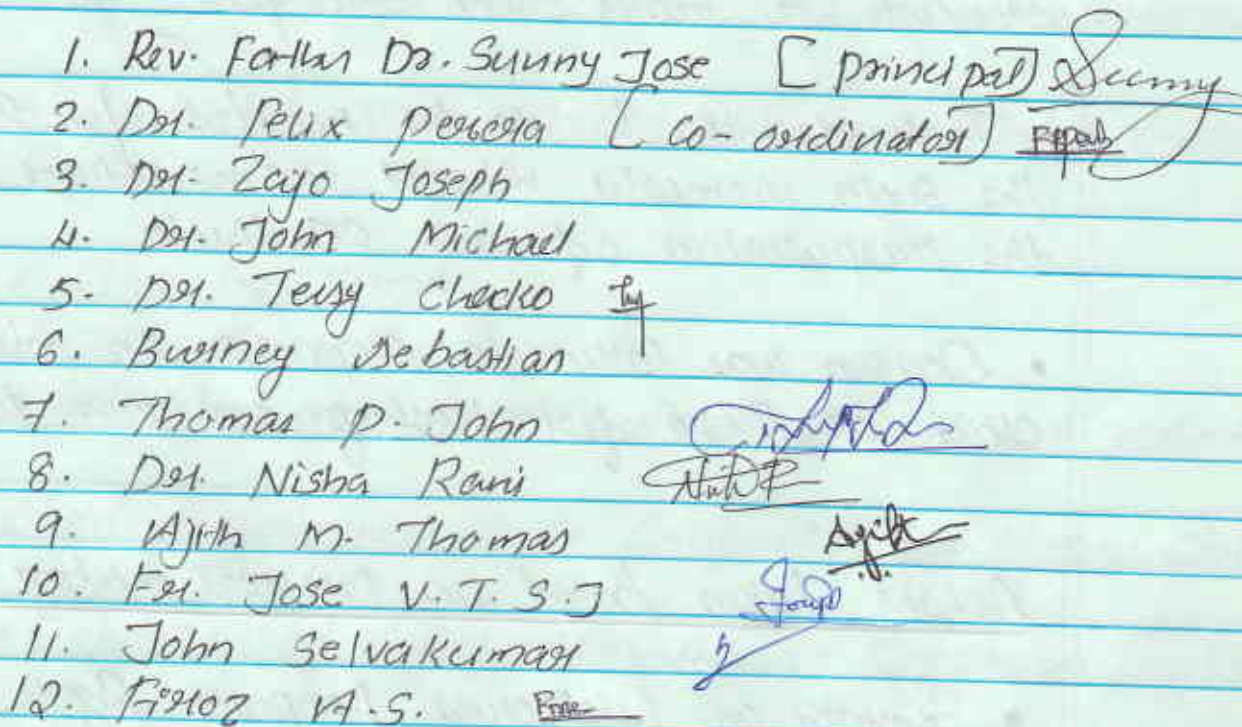 1. Rev. Father Dr. Sunny Jose [Principal] Sunny
2. Dr. Felix Perera [Co-ordinator]
3. Dr. Zajo Joseph
4. Dr. John Michael
5. Dr. Tessy Chacko
6. Burney Sebastian
7. Thomas P. John
8. Dr. Nisha Rani
9. Ajith M. Thomas Ajith
10. Fr. Jose V. T. S.J
11. John Selvakumar
12. Firoz A.S.